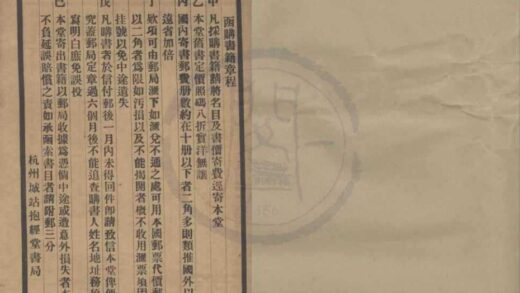 函購書籍章程
甲 凡採購書籍請將名目及書價寄費逕寄本堂
乙 本堂舊書定價照碼八折實洋無讓
丙 國內寄書郵費册數約在十册以下者二角多則類推國外以
遠省加倍
丁 欵項可由郵局滙下如滙兌不通之處可用本國郵票代價郵
以二角者爲限如污損以及不能揭開者概不收用滙票須固
掛號以免中途遺失
戊 凡購書者於信付郵後一月內未得回件即請致信本堂俾便
究蓋郵局定章過六個月後不能追查購書人姓名地址務
寫明白庶免誤投
己 本堂寄出書籍以郵局收據爲憑倘中途或遭意外損失者本
不負延誤賠償之責如承函索書目者請附郵三分
杭州城站抱經堂書局